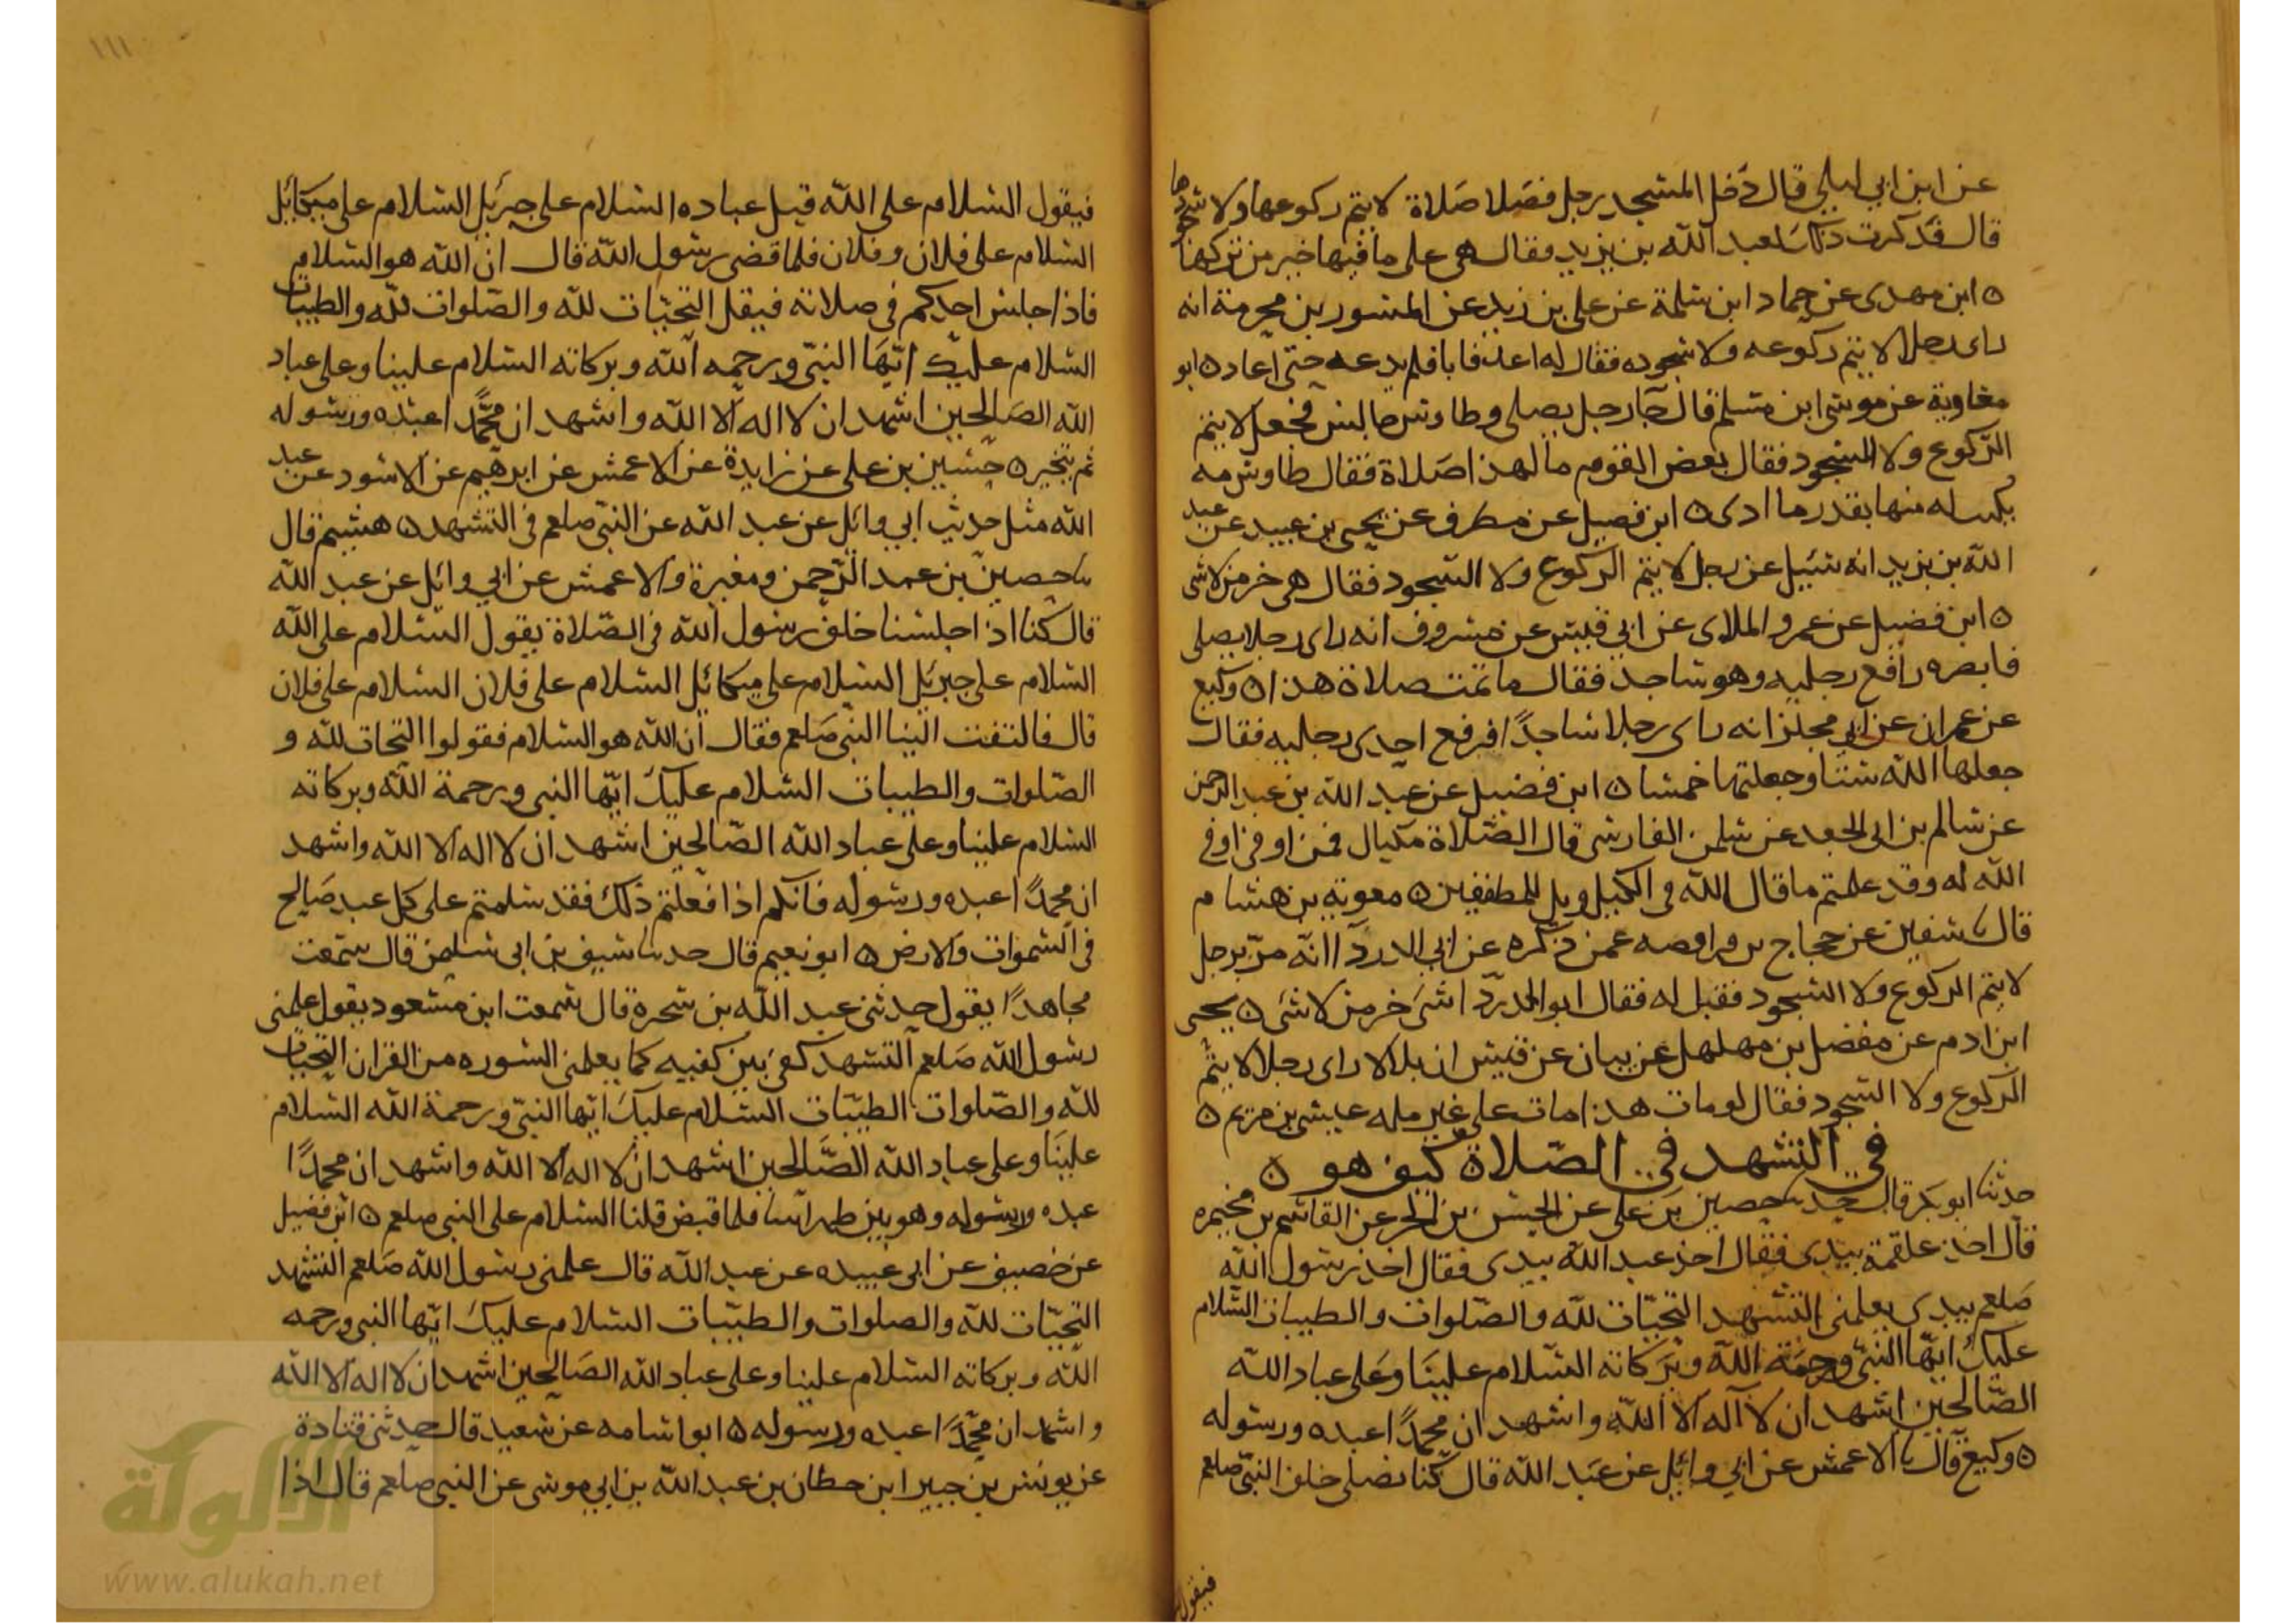 عن ابن ابي ليلى قال دخل المسجد رجل فصلا صلاة لا يتم ركوعها ولا سجودها
قال فذكرت ذلك لعبد الله بن يزيد فقال هي على ما فيها خير من تركها
ه ابن مهدى عن حماد ابن سلمة عن على بن زيد عن المسور بن مخرمة انه
راى رجلا لا يتم ركوعه ولا سجوده فقال له اعد فابا فلم يدعه حتى اعاد ه ابو
معاوية عن موسى ابن مسلم قال جا رجل يصلى وطاوس جالس فجعل لا يتم
الركوع ولا السجود فقال بعض القوم ما لهذا صلاة فقال طاوس مه
يكتب له منها بقدر ما ادى ه ابن فضيل عن مطرف عن يحيى بن عبيد عن عبد
الله بن يزيد انه سئيل عن رجل لا يتم الركوع ولا السجود فقال هى خر من لا شى
ه ابن فضيل عن عمرو الملاى عن ابي قيس عن مسروف انه راى رجلا يصلى
فابصره رافع رجليه وهو ساجد فقال ما تمت صلاة هذا ه وكيع
عن عمران عن ابي مجلز انه راى رجلا ساجدًا فرفع احدى رجليه فقال
جعلها الله ستا وجعلتها خمسا ه ابن فضيل عن عبد الله بن عبد الرحمن
عن سالم بن ابى الجعد عن سلمن الفارسى قال الصلاة مكيال فمن اوفى اوفى
الله له وقد علمتم ما قال الله فى الكيل ويل للمطففين ه معوية بن هشام
قال نا سفين عن حجاج بن فرافصه عمن ذكره عن ابي الدردآ انه مرّ برجل
لا يتم الركوع ولا السجود فقيل له فقال ابو الدردّا شى خر من لا شى ه يحيى
ابن ادم عن مفضل بن مهلهل عن بيان عن قيس ان بلالا راى رجلا لا يتم
الركوع ولا السجود فقال لو مات هذا مات على غير مله عيسى بن مريم ه
في التشهد في الصّلاة كيف هو ه
حدثنا ابو بكر قال حدثنا حصين بن على عن الحسن بن الحر عن القاسم بن مخيمره
قال اخذ علقمة بيدى فقال اخذ عبد الله بيدى فقال اخذ رسول الله
صلعم بيدى يعلمنى التشهد التحيّات لله والصّلوات والطيبات السّلام
عليك ايّها النبىّ ورحمة اللّه وبركاته السّلام علينا وعلى عباد اللّه
الصّالحين اشهد ان لا اله الا الله واشهد ان محمدًا عبده ورسوله
ه وكيع قال نا الاعمش عن ابي وائل عن عبد الله قال كنا نصلى خلف النبىّ صلعم
فيقول
١١١
فيقول السّلام على الله قبل عباده السّلام على جبرئيل السّلام على ميكائيل
السّلام على فلان وفلان فلما قضى رسول الله قال ان الله هو السّلام
فاذا جلس احدكم فى صلاته فيقل التحيّات لله والصّلوات لله والطيبات
السّلام عليك ايّها النبىّ ورحمه الله وبركاته السّلام علينا وعلى عباد
الله الصالحين اشهد ان لا اله الا الله واشهد ان محمّدًا عبده ورسوله
ثم يتخير ه حسين بن على عن زايدة عن الاعمش عن ابرهيم عن الاسود عن عبد
الله مثل حديث ابي وائل عن عبد الله عن النبىّ صلعم فى التشهد ه هشيم قال
نا حصين بن عبد الرّحمن ومغيرة والاعمش عن ابي وائل عن عبد الله
قال كنا اذا جلسنا خلف رسول الله فى الصّلاة يقول السّلام على الله
السّلام على جبرئيل السّلام على ميكائيل السّلام على فلان السّلام على فلان
قال فالتفت الينا النبى صلعم فقال ان الله هو السّلام فقولوا التحيات لله و
الصّلوات والطيبات السّلام عليك ايّها النبى ورحمة الله وبركاته
السّلام علينا وعلى عباد الله الصّالحين اشهد ان لا اله الا الله واشهد
ان محمدًا عبده ورسوله فانكم اذا فعلتم ذلك فقد سلمتم على كل عبد صالح
فى السّموات والارض ه ابو نعيم قال حدثنا سيف بن ابى سلمن قال سمعت
مجاهدًا يقول حدثنى عبد الله بن سخبره قال سمعت ابن مسعود يقول علمنى
رسول الله صلعم التشهد كفى بين كفيه كما يعلمنى السوره من القران التحيات
لله والصّلوات الطيّبات السّلام عليك ايّها النبىّ ورحمة الله السّلام
علينا وعلى عباد الله الصّالحين اشهد ان لا اله الا الله واشهد ان محمدًا
عبده ورسوله وهو بين ظهرانينا فلما قبض قلنا السّلام على النبى صلعم ه ابن فضيل
عن خصيف عن ابى عبيده عن عبد الله قال علمنى رسول الله صلعم التشهد
التحيّات لله والصلوات والطيّبات السّلام عليك ايّها النبى ورحمه
اللّه وبركاته السّلام علينا وعلى عباد الله الصّالحين اشهد ان لا اله الا الله
واشهد ان محمّدًا عبده ورسوله ه ابو اسامه عن سعيد قال حدثنى قتادة
عن يونس بن جبير ابن حطان بن عبد الله بن ابي موسى عن النبى صلعم قال اذا
الألوكة
www.alukah.net